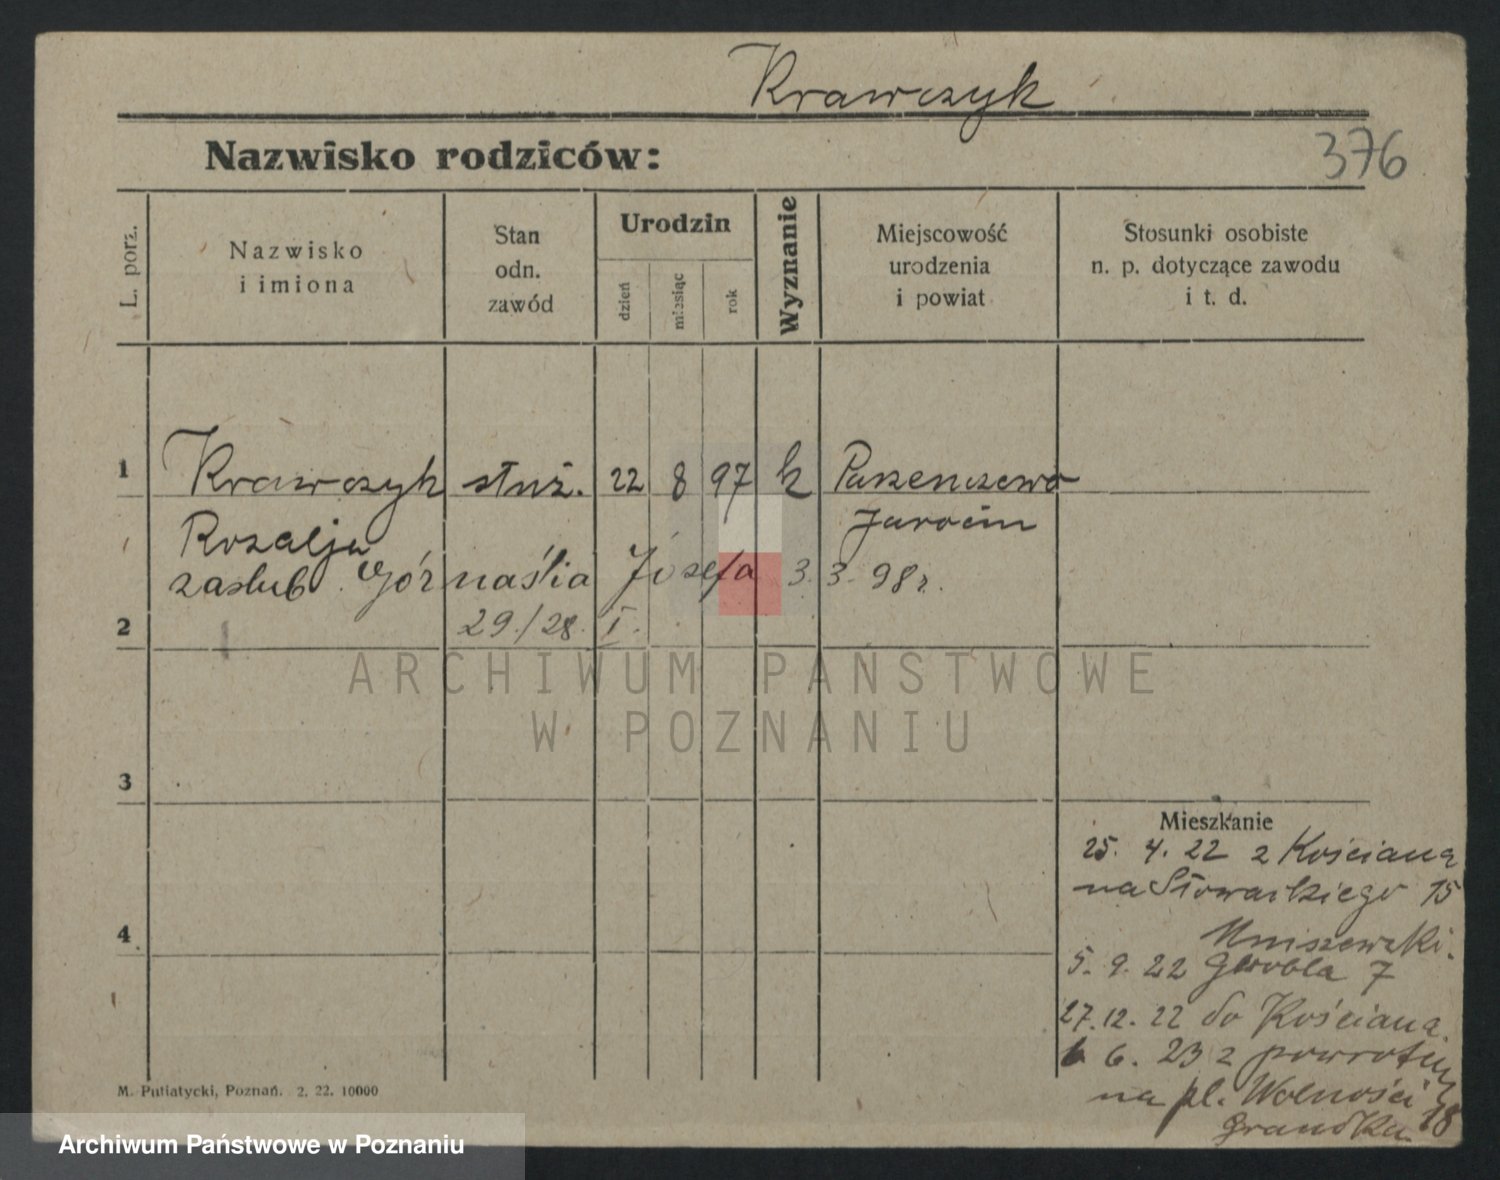 Krawczyk
Nazwisko rodziców:
376
L. porz.
Nazwisko
i imiona
Stan
odn.
zawód
Urodzin
dzień
miesiąc
rok
Wyznanie
Miejscowość
urodzenia
i powiat
Stosunki osobiste
n. p. dotyczące zawodu
i t. d.
1
Krawczyk służ. 22 8 97 k
Rozalja Jarocin
zaślub. Józefa 3. 3. 98 r.
2
29./28. I.
ARCHIWUM PAŃSTWOWE
W POZNANIU
3
Mieszkanie
25. 4. 22 z Kościana
na Słowackiego 15
4
Mniszewski.
5. 9. 22 Grobla 7
27. 12. 22 do Kościana.
6. 23 z powrotem
na pl. Wolności 18
M. Putiatycki, Poznań. 2. 22. 10000
Archiwum Państwowe w Poznaniu